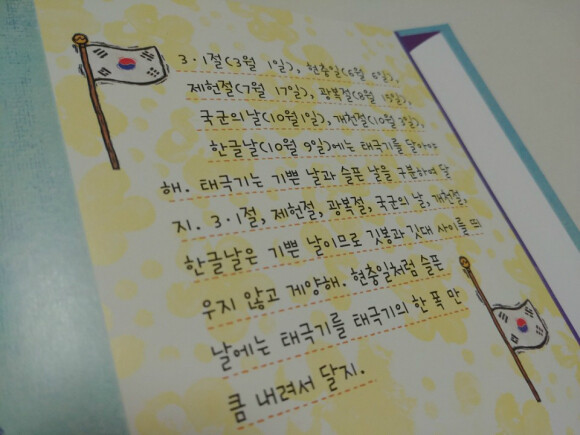 3·1절(3월 1일), 현충일(6월 6일),
제헌절(7월 17일), 광복절(8월 15일),
국군의날(10월1일), 개천절(10월 3일),
한글날(10월 9일)에는 태극기를 달아야
해. 태극기는 기쁜 날과 슬픈 날을 구분하여 달
지. 3·1절, 제헌절, 광복절, 국군의 날, 개천절,
한글날은 기쁜 날이므로 깃봉과 깃대 사이를 띄
우지 않고 게양해. 현충일처럼 슬픈
날에는 태극기를 태극기의 한 폭 만
큼 내려서 달지.